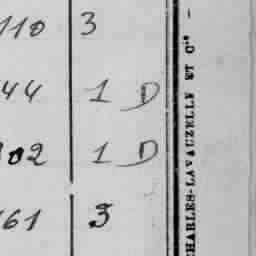 110 3
44 1 D
102 1 D
161 3
CHARLES-LAVAUZELLE ET Cie -